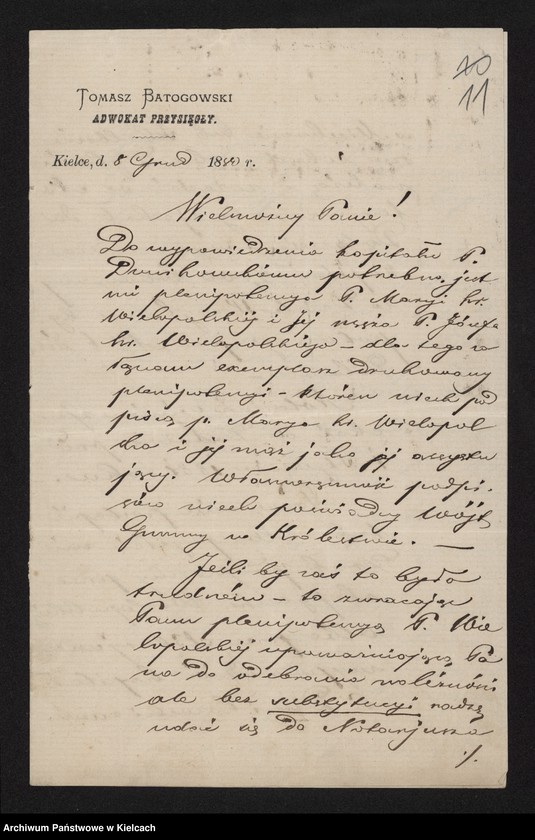 10
11
TOMASZ BATOGOWSKI
ADWOKAT PRZYSIĘGŁY.
Kielce, d. 8 Grud 1880 r.
Wielmożny Panie!
Do wypowiedzenia kapitału P.
potrzebną jest
mi plenipotencya P. Maryi hr.
Wielopolskiej i Jej męża P. Józefa
hr. Wielopolskiego – dla tego za
łączam exemplarz drukowany
plenipotencyi – któren niech pod
piszą p. Marya hr. Wielopol
ska i jej mąż jako jej assystu
jący. Własnoręczność podpi-
sów niech poświadczy Wójt
Gminy w Królestwie. —
Jeśli by zaś to było
trudnem – to zwracając
Panu plenipotencyą P. Wie
lopolskiej upoważniającą Pa
na do odebrania należności
ale bez substytucyi radzę
udać się do Notaryusza
./.
Archiwum Państwowe w Kielcach